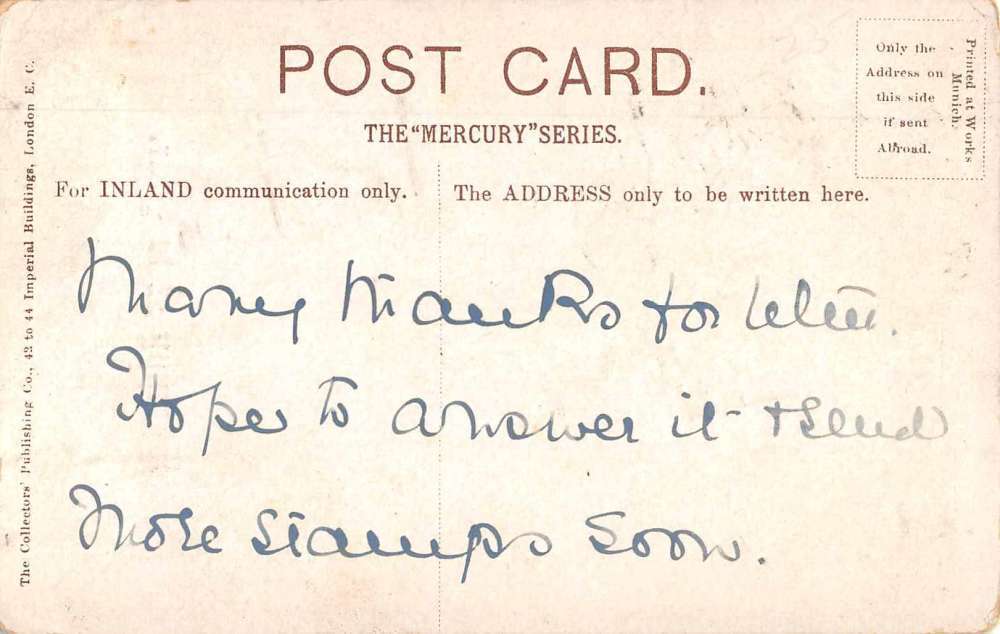 POST CARD.
THE "MERCURY" SERIES.
For INLAND communication only.
The ADDRESS only to be written here.
Only the
Address on
this side
if sent
Abroad.
Printed at Works
Munich.
The Collectors' Publishing Co., 42 to 44 Imperial Buildings, London E. C.
Many thanks for letter.
Hope to answer it + send
more stamps soon.